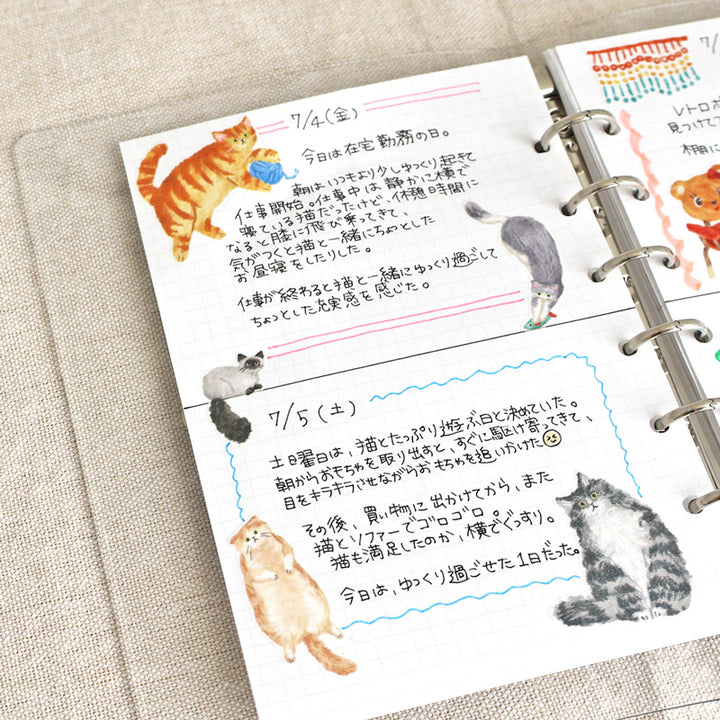 7/4(金)
今日は在宅勤務の日。
朝はいつもより少しゆっくり起きて
仕事開始。仕事中は静かに横で
寝ている猫だったけど、休憩時間に
なると膝に飛び乗ってきて、
気がつくと猫と一緒にちょっとした
お昼寝をしたりした。
仕事が終わると猫と一緒にゆっくり過ごして
ちょっとした充実感を感じた。
7/5(土)
土日曜日は、猫とたっぷり遊ぶ日と決めていた。
朝からおもちゃを取り出すと、すぐに駆け寄ってきて、
目をキラキラさせながらおもちゃを追いかけた
その後、買い物に出かけてから、また
猫とソファーでゴロゴロ。
猫も満足したのか、横でぐっすり。
今日は、ゆっくり過ごせた1日だった。
7/
レトロ
見つけて
棚に